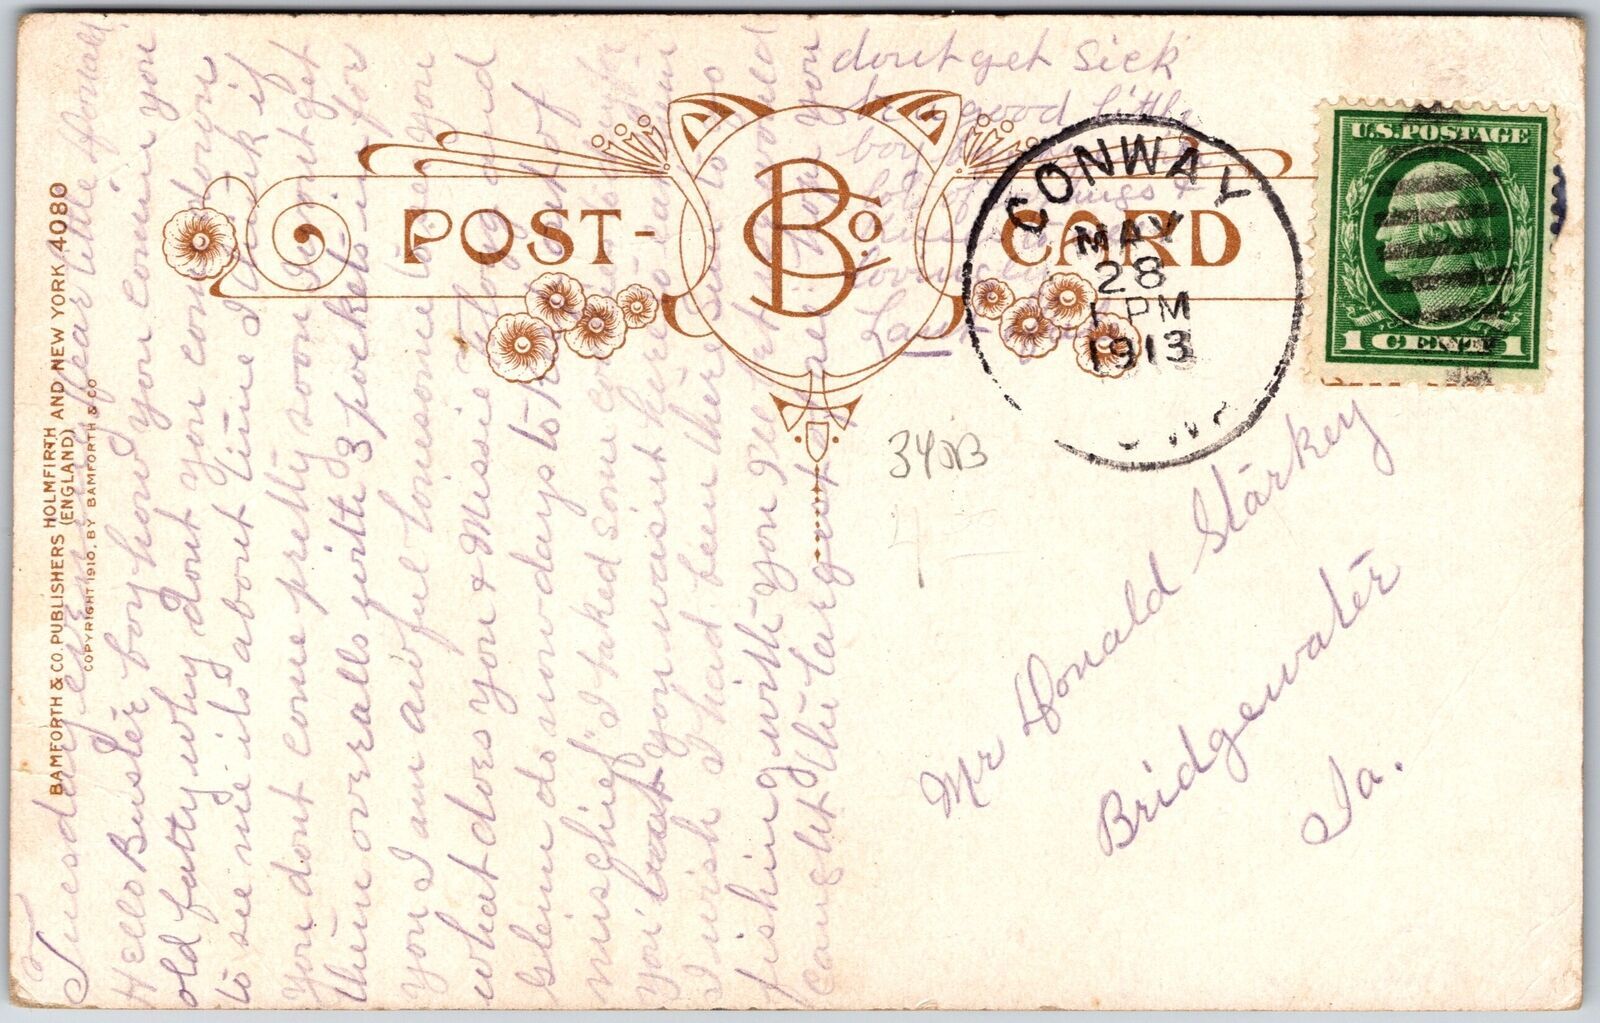 BAMFORTH & CO. PUBLISHERS HOLMFIRTH AND NEW YORK 4080
(ENGLAND)
COPYRIGHT 1910, BY BAMFORTH & CO
POST-CARD
B Co
CONWAY
MAY
28
1 PM
1913
U.S. POSTAGE
1 CENT 1
Tuesday eve my dear little Donald
Hello Buster boy how you comin you
old fatty why dont you come down
to see me its about time I think if
You dont come pretty soon I wont get
them overalls with 3 pockets in for
you I am awful lonesome to see you
what does you & Missie Aflong and
Glenn do now days to keep out of
mischief I baked some cookies
you want you wasnt here to eat um
I wish I had been there Sun to go
fishing with you I'll bet I would
caught the largest
dont get sick
be a good little
boy
lots of things &
lovingly
Mr Donald Starkey
Bridgewater
Ia.